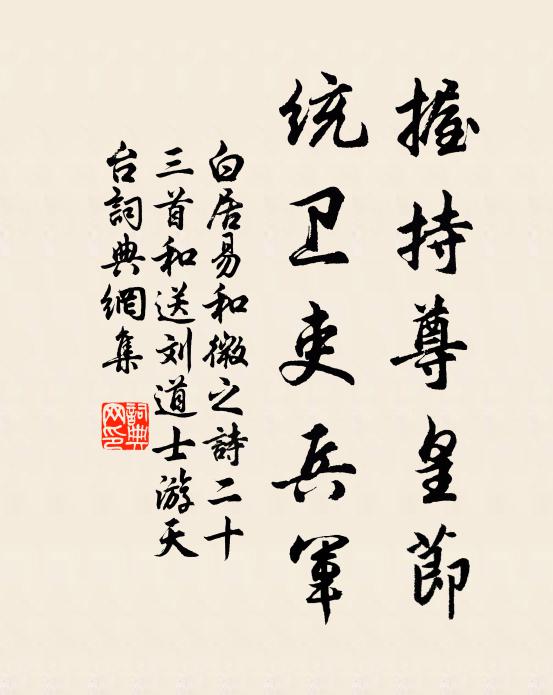 握持尊皇節
統卫吏兵軍
白居易和微之詩二十
三首和送刘道士游天
台詞典網集
詞典
网印